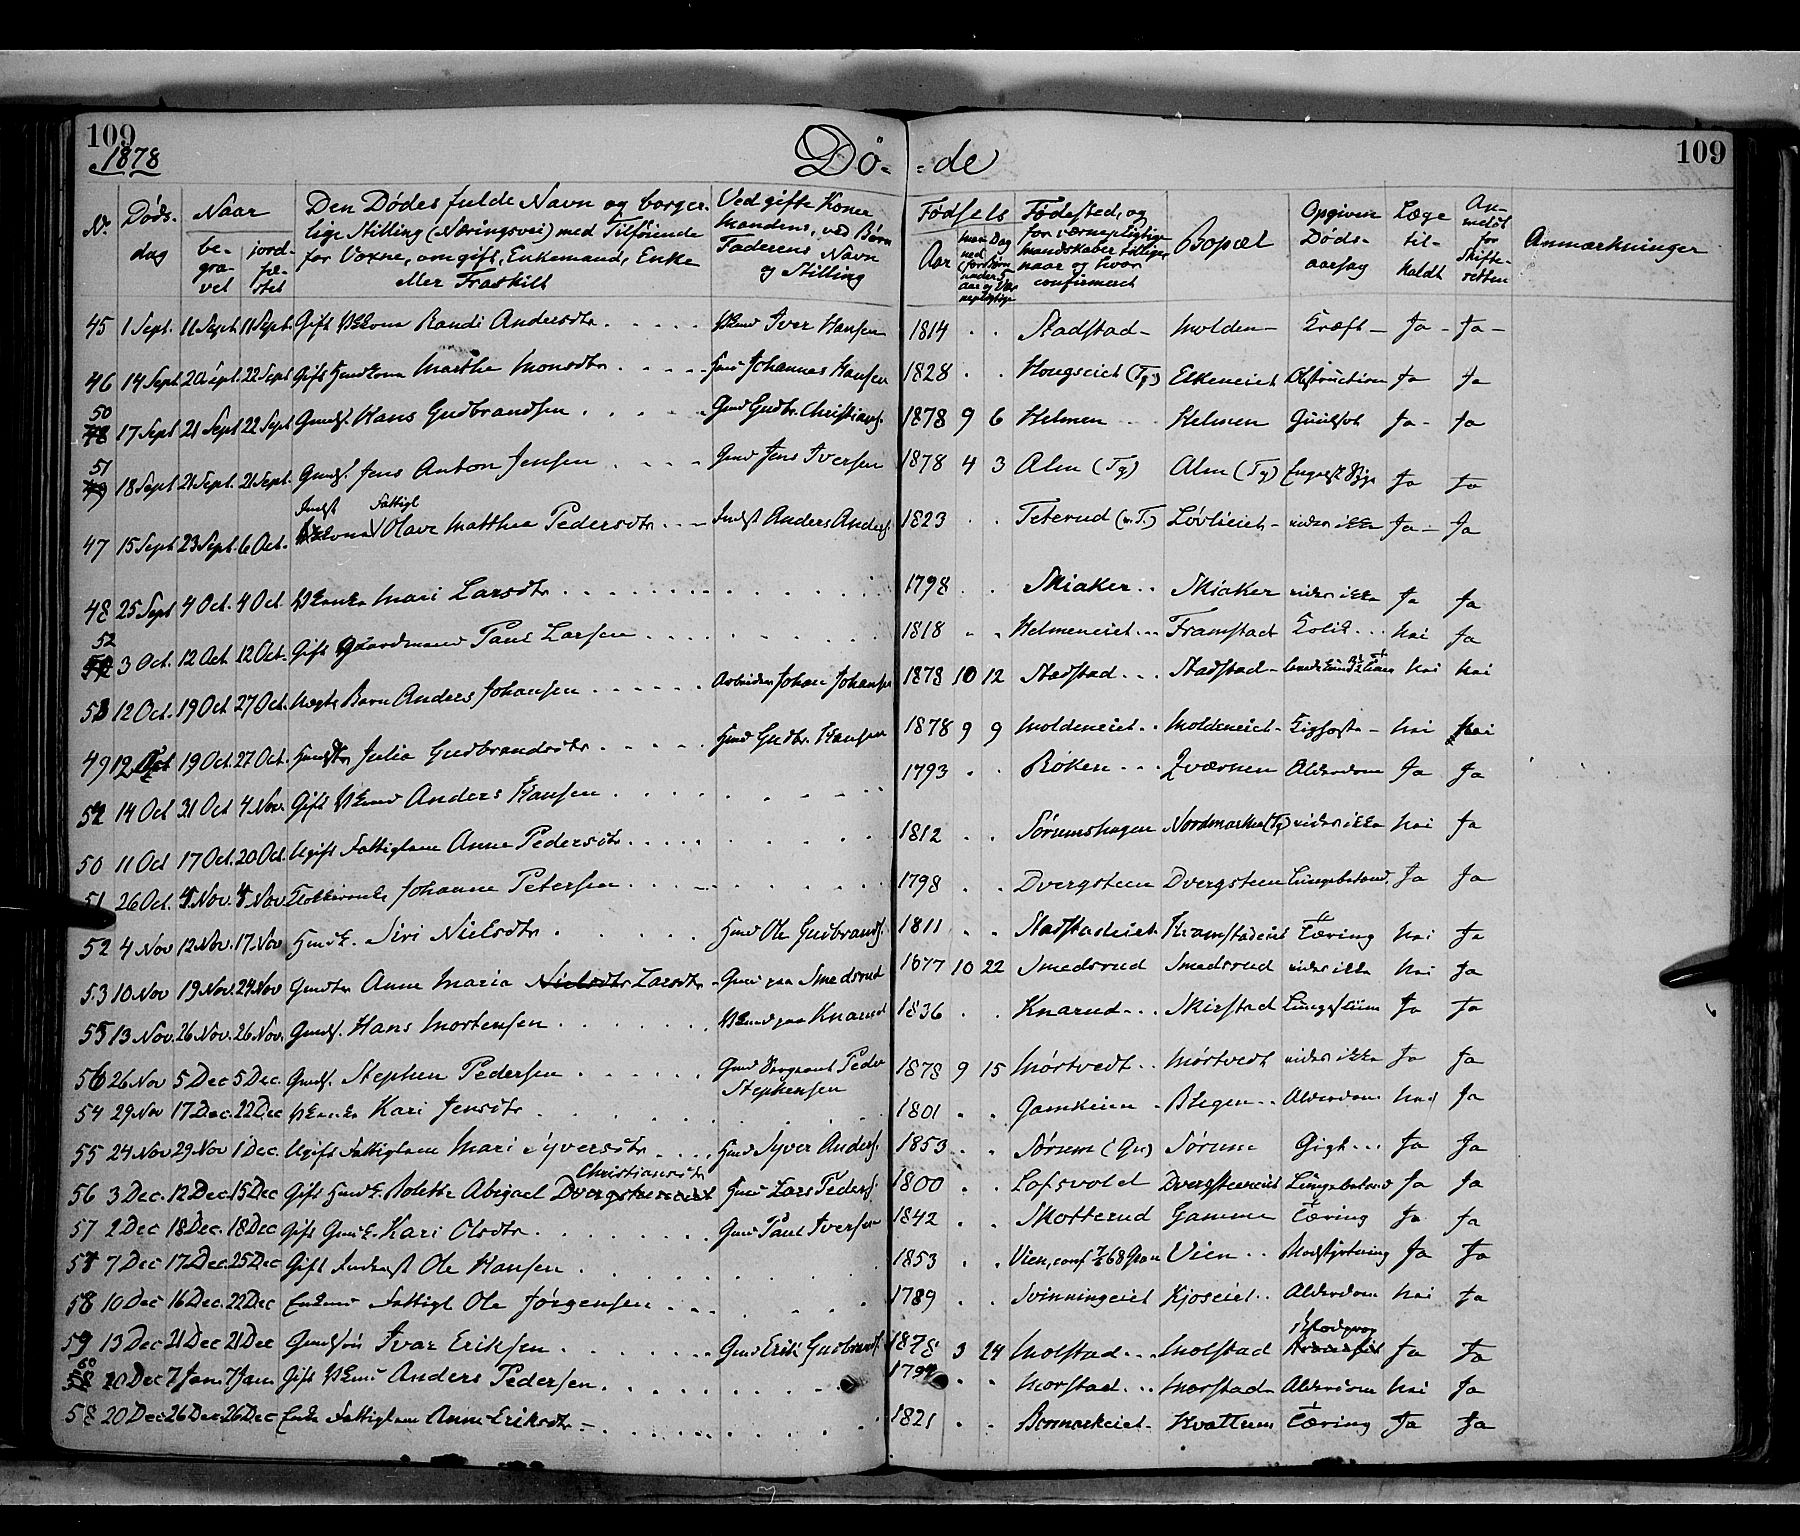 109
1878
Dø- -de
109
No. Døds-dag Naar be-gra-vet jord-fæ-stet Den Dødes fulde Navn og borger-lige Stilling (Næringsvei) med Tilføiende for Voxne, om gift, Enkemand, Enke eller Fraskilt Ved gifte Koner Mandens, ved Børn Faderens Navn og Stilling Fødsels Aar Fødested, og for værnepligtige Mandskaber tillige naar og hvor confirmeret Bopæl Opgiven Døds-aarsag Læge til-kaldt An-meldt for Skifte-retten Anmærkninger
45 1 Sept. 11 Sept. 11 Sept. Gift Randi Andersdtr. Iver Hansen 1814 Stadstad Molden Kræft Ja Ja
46 14 Sept 20 Sept. 22 Sept Gift Huskona Marthe Monsdtr Johannes Hansen 1828 Hougseiet (Tg) Elkeneiet Obstruction Ja Ja
50 17 Sept 21 Sept 22 Sept Gmds. Hans Gudbrandsen Gmd Gudbr. Christians. 1878 9 6 Helmen Helmen Guulsot Ja Ja
51 18 Sept 21 Sept. 21 Sept. Gmds. Jens Anton Jensen Gmd Jens Iversen 1878 4 3 Alm (Tg) Alm (Tg) Ja Ja
47 15 Sept 23 Sept. 6 Oct. Indst Fattigl Olave Matthea Pedersdtr Indst Anders Anders. 1823 Teterud (v.T.) Løvlieiet vides ikke Ja Ja
48 25 Sept 4 Oct. 4 Oct. Mari Larsdtr 1798 Skiaker Skiaker vides ikke Ja Ja
52 3 Oct. 12 Oct 12 Oct. Gift Gaardmand Paul Larsen 1818 Helmeneiet Framstad Kolik Nei Ja
53 12 Oct. 19 Oct 27 Oct. Uægte Barn Anders Johansen Arbeider Johan Johansen 1878 10 12 Stadstad Stadstad Nei Nei
49 12 Oct 19 Oct. 27 Oct. Julia Gudbrandsdtr Gudbr. Hansen 1878 9 9 Moldeneiet Moldeneiet Kighoste Nei Nei
14 Oct 31 Oct 4 Nov. Gift Anders Hansen 1793 Røken Kværnen Alderdom Ja Ja
50 11 Oct 17 Oct. 20 Oct. Ugift Fattiglem Anne Pedersdtr 1812 Sørumshagen Nordmarken (Tg) vides ikke Nei Ja
51 26 Oct. 4 Nov. 4 Nov Johanne Petersen 1798 Dvergsteen Dvergsteen Lungebetænd. Ja Ja
52 4 Nov 12 Nov. 17 Nov Siri Nielsdtr Ole Gudbrands. 1811 Stadstadeiet Framstadeiet Tæring Nei Ja
53 10 Nov 19 Nov. 24 Nov Gmdtr Anne Maria Nielsdtr Larsdtr Gmd paa Smedsrud 1877 10 22 Smedsrud Smedsrud vides ikke Nei Ja
55 13 Nov. 26 Nov. 26 Nov. Gmds. Hans Mortensen paa Knarud 1836 Knarud Skirstad Ja Ja
56 26 Nov 5 Dec 5 Dec. Gmds. Stephen Pedersen Gmd Sergeant Peder Stephensen 1878 9 15 Mørtvedt Mørtvedt vides ikke Ja Ja
54 29 Nov 17 Dec. 22 Dec Kari Jensdtr 1801 Gamkeien Blegen Alderdom Nei Ja
55 24 Nov 29 Nov 1 Dec. Ugift Fattiglem Mari Syversdtr Syver Anders. 1853 Sørum (Gr) Sørum Gigt Ja Ja
56 3 Dec. 12 Dec. 15 Dec Gift Bolette Abigael Dvergsteeneiet Christiansdtr Lars Peders. 1800 Lofsvold Dvergsteeneiet Lungebetænd Ja Ja
57 2 Dec 18 Dec. 18 Dec Gift Kari Olsdtr Gmd Paul Iversen 1842 Skotterud Gamme Tæring Ja Ja
7 Dec 17 Dec. 25 Dec Gift Inderst Ole Hansen 1853 Vien, conf 68 Gran Vien Ja Ja
58 10 Dec 16 Dec. 22 Dec Enkem Fattigl Ole Jørgensen 1789 Svinningeiet Kjoseiet Alderdom Nei Ja
59 13 Dec 21 Dec 21 Dec Gmdsøn Ivar Eriksen Gmd Erik Gudbrands. 1878 3 24 Molstad Molstad Ja Ja
60 20 Dec 7 Jan. 7 Jan Gift Anders Pedersen Morstad Morstad Alderdom Nei Ja
58 20 Dec 26 Dec. 26 Dec Enke Fattiglem Anne Eriksdtr 1821 Hvattum Tæring Ja Ja